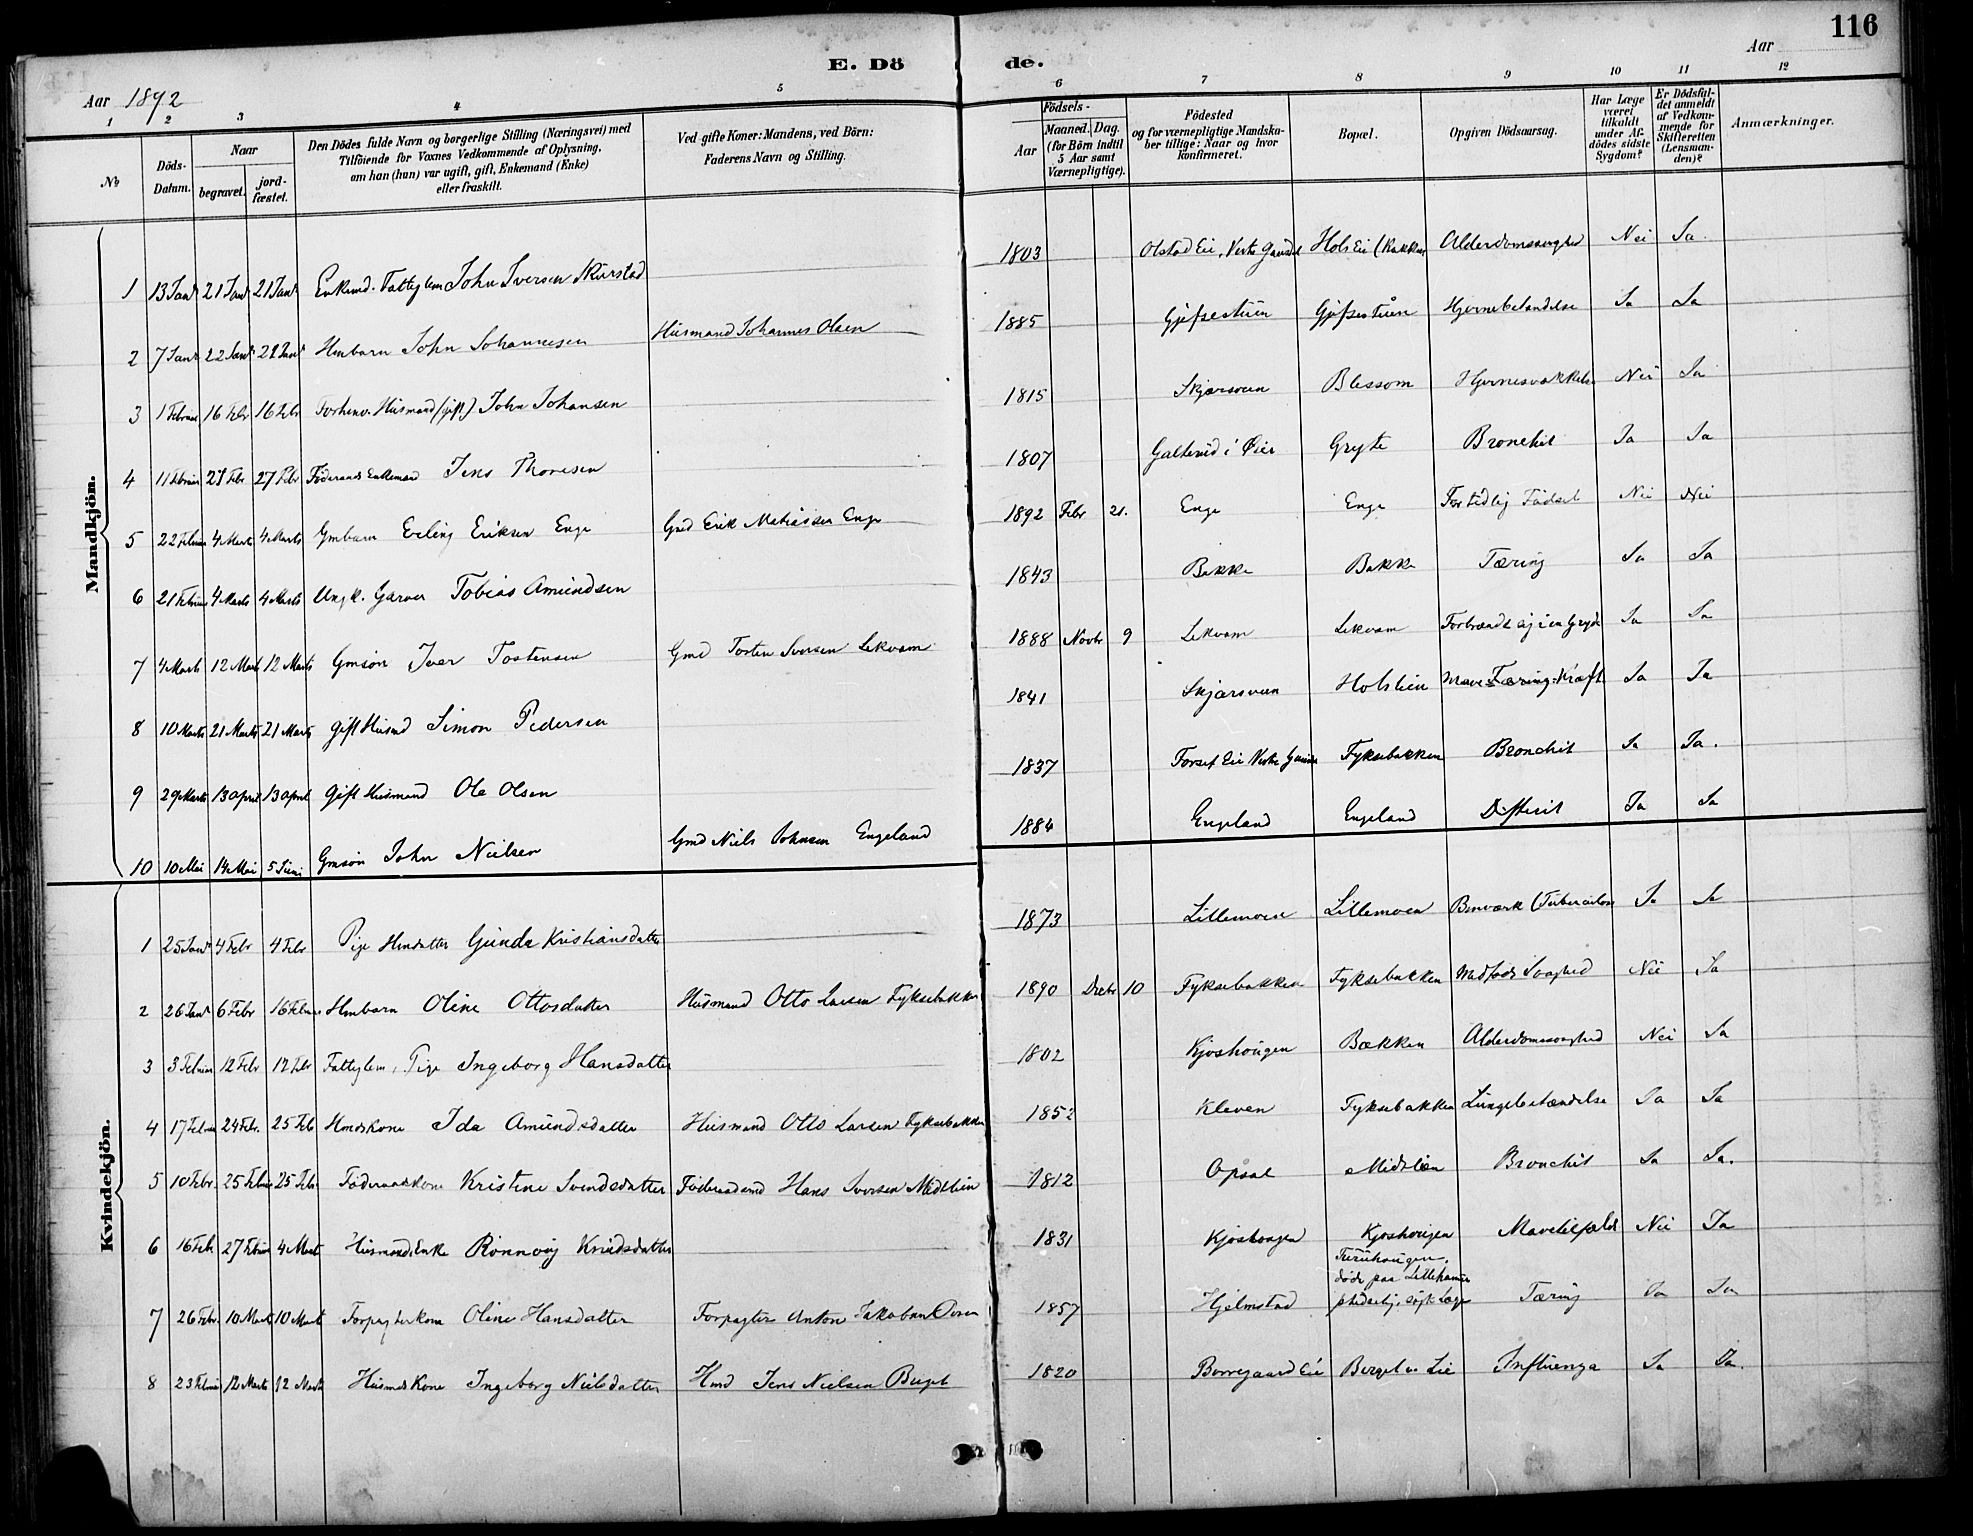 116
E. Döde.
Aar 1892
Aar
1 2 3 4 5 6 7 8 9 10 11 12
№
Döds-Datum.
Naar
begravet.
jordfæstet.
Den Dödes fulde Navn og borgerlige Stilling (Næringsvei) med
Tilföiende for Voxnes Vedkommende af Oplysning,
om han (hun) var ugift, gift, Enkemand (Enke)
eller fraskilt.
Ved gifte Koner: Mandens, ved Börn:
Faderens Navn og Stilling.
Födsels-
Aar
Maaned. Dag.
(for Börn indtil
5 Aar samt
Værnepligtige).
Födested
og for værnepligtige Mandska-
ber tillige: Naar og hvor
konfirmeret.
Bopæl.
Opgiven Dödsaarsag.
Har Læge
været
tilkaldt
under Af-
dödes sidste
Sygdom?
Er Dödsfal-
det anmeldt
af Vedkom-
mende for
Skifteretten
(Lensman-
den)?
Anmærkninger.
Mandkjön.
1 13 Janr 21 Janr 21 Janr Enkemd. Fattiglem John Iversen Skurstad 1803 Olstad Eie, Vestre Gausdal Hols Eie (Bakken Alderdomssvaghed Nei Ja.
2 7 Janr 22 Janr 22 Janr Hmbarn John Johannesen Husmand Johannes Olsen 1885 Gjefsestuen Gjefsestuen Hjernebetændelse Ja Ja
3 1 Februar 16 Febr 16 Febr Forhenv. Husmand (gift) John Johansen 1815 Skjarsveen Blessom Hjernesvækkelse Nei Ja
4 11 Februar 27 Febr 27 Febr Föderaads Enkemand Jens Thoresen 1807 Galterud i Öier Gryte Bronchit Ja Ja
5 22 Februar 4 Marts 4 Marts Gmbarn Erling Eriksen Enge Gmd Erik Mathiassen Enge 1892 Febr 21. Enge Enge For tidlig Födsel Nei Nei
6 21 Februar 4 Marts 4 Marts Ungk. Garver Tobias Amundsen 1843 Bakke Bakke Tæring Ja Ja
7 4 Marts 12 Marts 12 Marts Gmsön Iver Tostensen Gmd Tosten Iversen Lekvam 1888 Novbr 9 Lekvam Lekvam Forbrændt sig i en Gryde Ja Ja
8 10 Marts 21 Marts 21 Marts gift Husmd Simon Pedersen 1841 Skjarsveen Holslien Mave-Tæring-Kræft Ja Ja
9 29 Marts 13 April 13 April Gift Husmand Ole Olsen 1837 Forset Eie Vestre Gausdal Fyksebakken Bronchit Ja Ja.
10 10 Mai 14 Mai 5 Juni Gmsön John Nielsen Gmd Niels Johnsen Engeland 1884 Engeland Engeland Difterit Ja Ja
Kvindekjön.
1 25 Janr 4 Febr 4 Febr Pige Hmdatter Gunda Kristiansdatter 1873 Lillemoen Lillemoen Benværk (Tuberculos Ja Ja
2 26 Janr 6 Febr 16 Februar Hmbarn Oline Ottosdatter Husmand Otto Larsen Fyksebakken 1890 Decbr 10 Fyksebakken Fyksebakken Medfödt Svaghed Nei Ja
3 3 Februar 12 Febr 12 Febr Fattiglem, Pige Ingeborg Hansdatter 1802 Kjoshougen Bækken Alderdomssvaghed Nei Ja
4 17 Februar 24 Febr. 25 Feb Hmdskone Ida Amundsdatter Husmand Otto Larsen Fyksebakken 1852 Kleven Fyksebakken Lungebetændelse Ja Ja
5 10 Febr 25 Februar 25 Feb. Föderaadskone Kristine Svendsdatter Föderaadsmd Hans Iversen Midtlien 1812 Opsal Midtlien Bronchit Ja Ja.
6 16 Feb. 27 Februar 4 Mart Husmands Enke Rönnoug Knudsdatter 1831 Kjoshougen Kjoshougen Mavetilfælde Nei Ja
7 26 Febr. 10 Mart 10 Mart Forpagterkone Oline Hansdatter Forpagter Anton Jakobsen 1857 Hjelmstad död paa Lillehammer Tæring Ja Ja
8 23 Februar 12 Marts 12 Marts Husmdskone Ingeborg Nielsdatter Hmd Jens Nielsen 1820 Borregaard Eie Influenza Ja Ja.